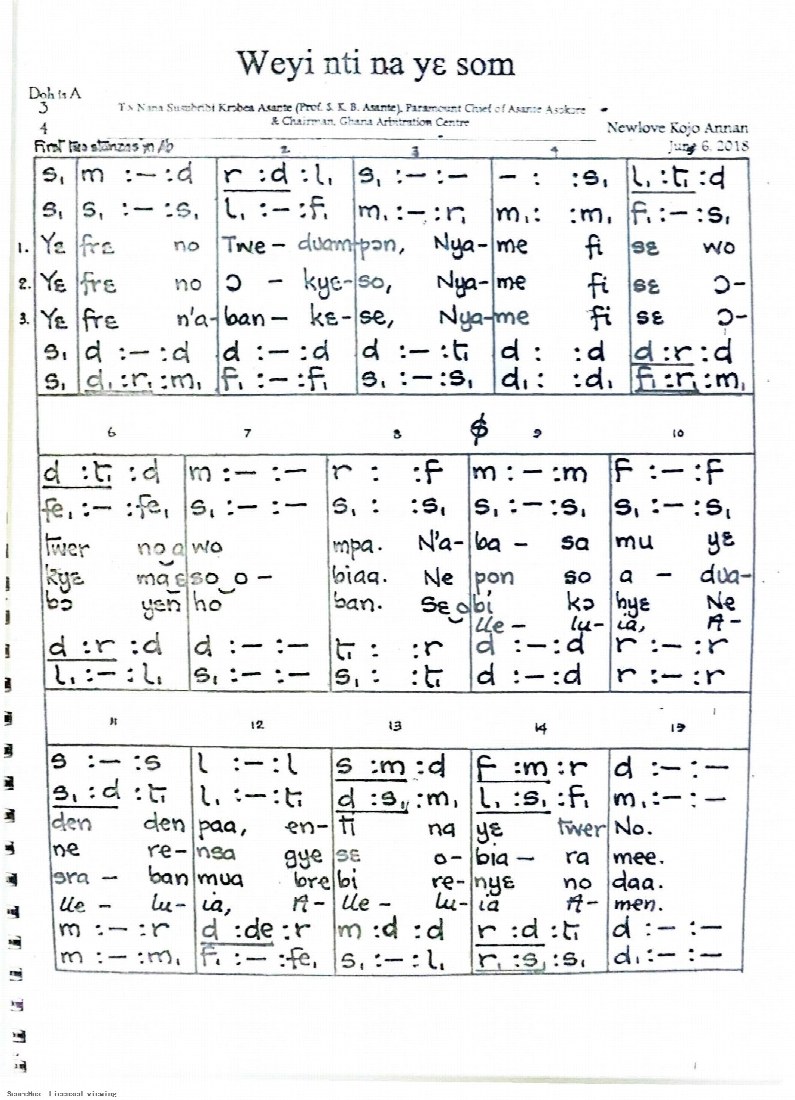 Weyi nti na yɛ som
Doh is A
3
4
To Nana Susubribi Krobea Asante (Prof. S. K. B. Asante), Paramount Chief of Asante Asokore
& Chairman, Ghana Arbitration Centre
Newlove Kojo Annan
First two stanzas in Ab
June 6, 2018
2 3 4
s₁ m :– :d r :d :l₁ s₁ :– :– – : :s₁ l₁ :t₁ :d
s₁ s₁ :– :s₁ l₁ :– :f₁ m₁ :– :r₁ m₁ : :m₁ f₁ :– :s₁
1. Yɛ frɛ no Twe – duampɔn, Nya- me fi sɛ wo
2. Yɛ frɛ no Ɔ – kyɛ- so, Nya- me fi sɛ ɔ-
3. Yɛ frɛ n'a- ban – kɛ- se, Nya- me fi sɛ ɔ-
s₁ d :– :d d :– :d d :– :t₁ d : :d d :r :d
s₁ d₁ :r₁ :m₁ f₁ :– :f₁ s₁ :– :s₁ d₁ : :d₁ f₁ :r₁ :m₁
6 7 8 9 10
d :t₁ :d m :– :– r : :f m :– :m f :– :f
fe₁ :– :fe₁ s₁ :– :– s₁ : :s₁ s₁ :– :s₁ s₁ :– :s₁
twer no a wo mpa. N'a- ba – sa mu yɛ
kyɛ ma ɛ so o – biaa. Ne pon so a – dua-
bɔ yɛn ho ban. Sɛ obi kɔ hyɛ Ne
lle – lu- ia, A-
d :r :d d :– :– t₁ : :r d :– :d r :– :r
l₁ :– :l₁ s₁ :– :– s₁ : :t₁ d :– :d r :– :r
11 12 13 14 15
s :– :s l :– :l s :m :d f :m :r d :– :–
s₁ :d :t₁ l₁ :– :t₁ d :s₁ :m₁ l₁ :s₁ :f₁ m₁ :– :–
den den paa, en- ti na yɛ twer No.
ne re- nsa gye sɛ o- bia – ra mee.
sra – ban mua bre bi re- nyɛ no daa.
lle – lu- ia, A- lle – lu- ia A- men.
m :– :r d :de :r m :d :d r :d :t₁ d :– :–
m :– :m₁ f₁ :– :fe₁ s₁ :– :l₁ r₁ :s₁ :s₁ d₁ :– :–